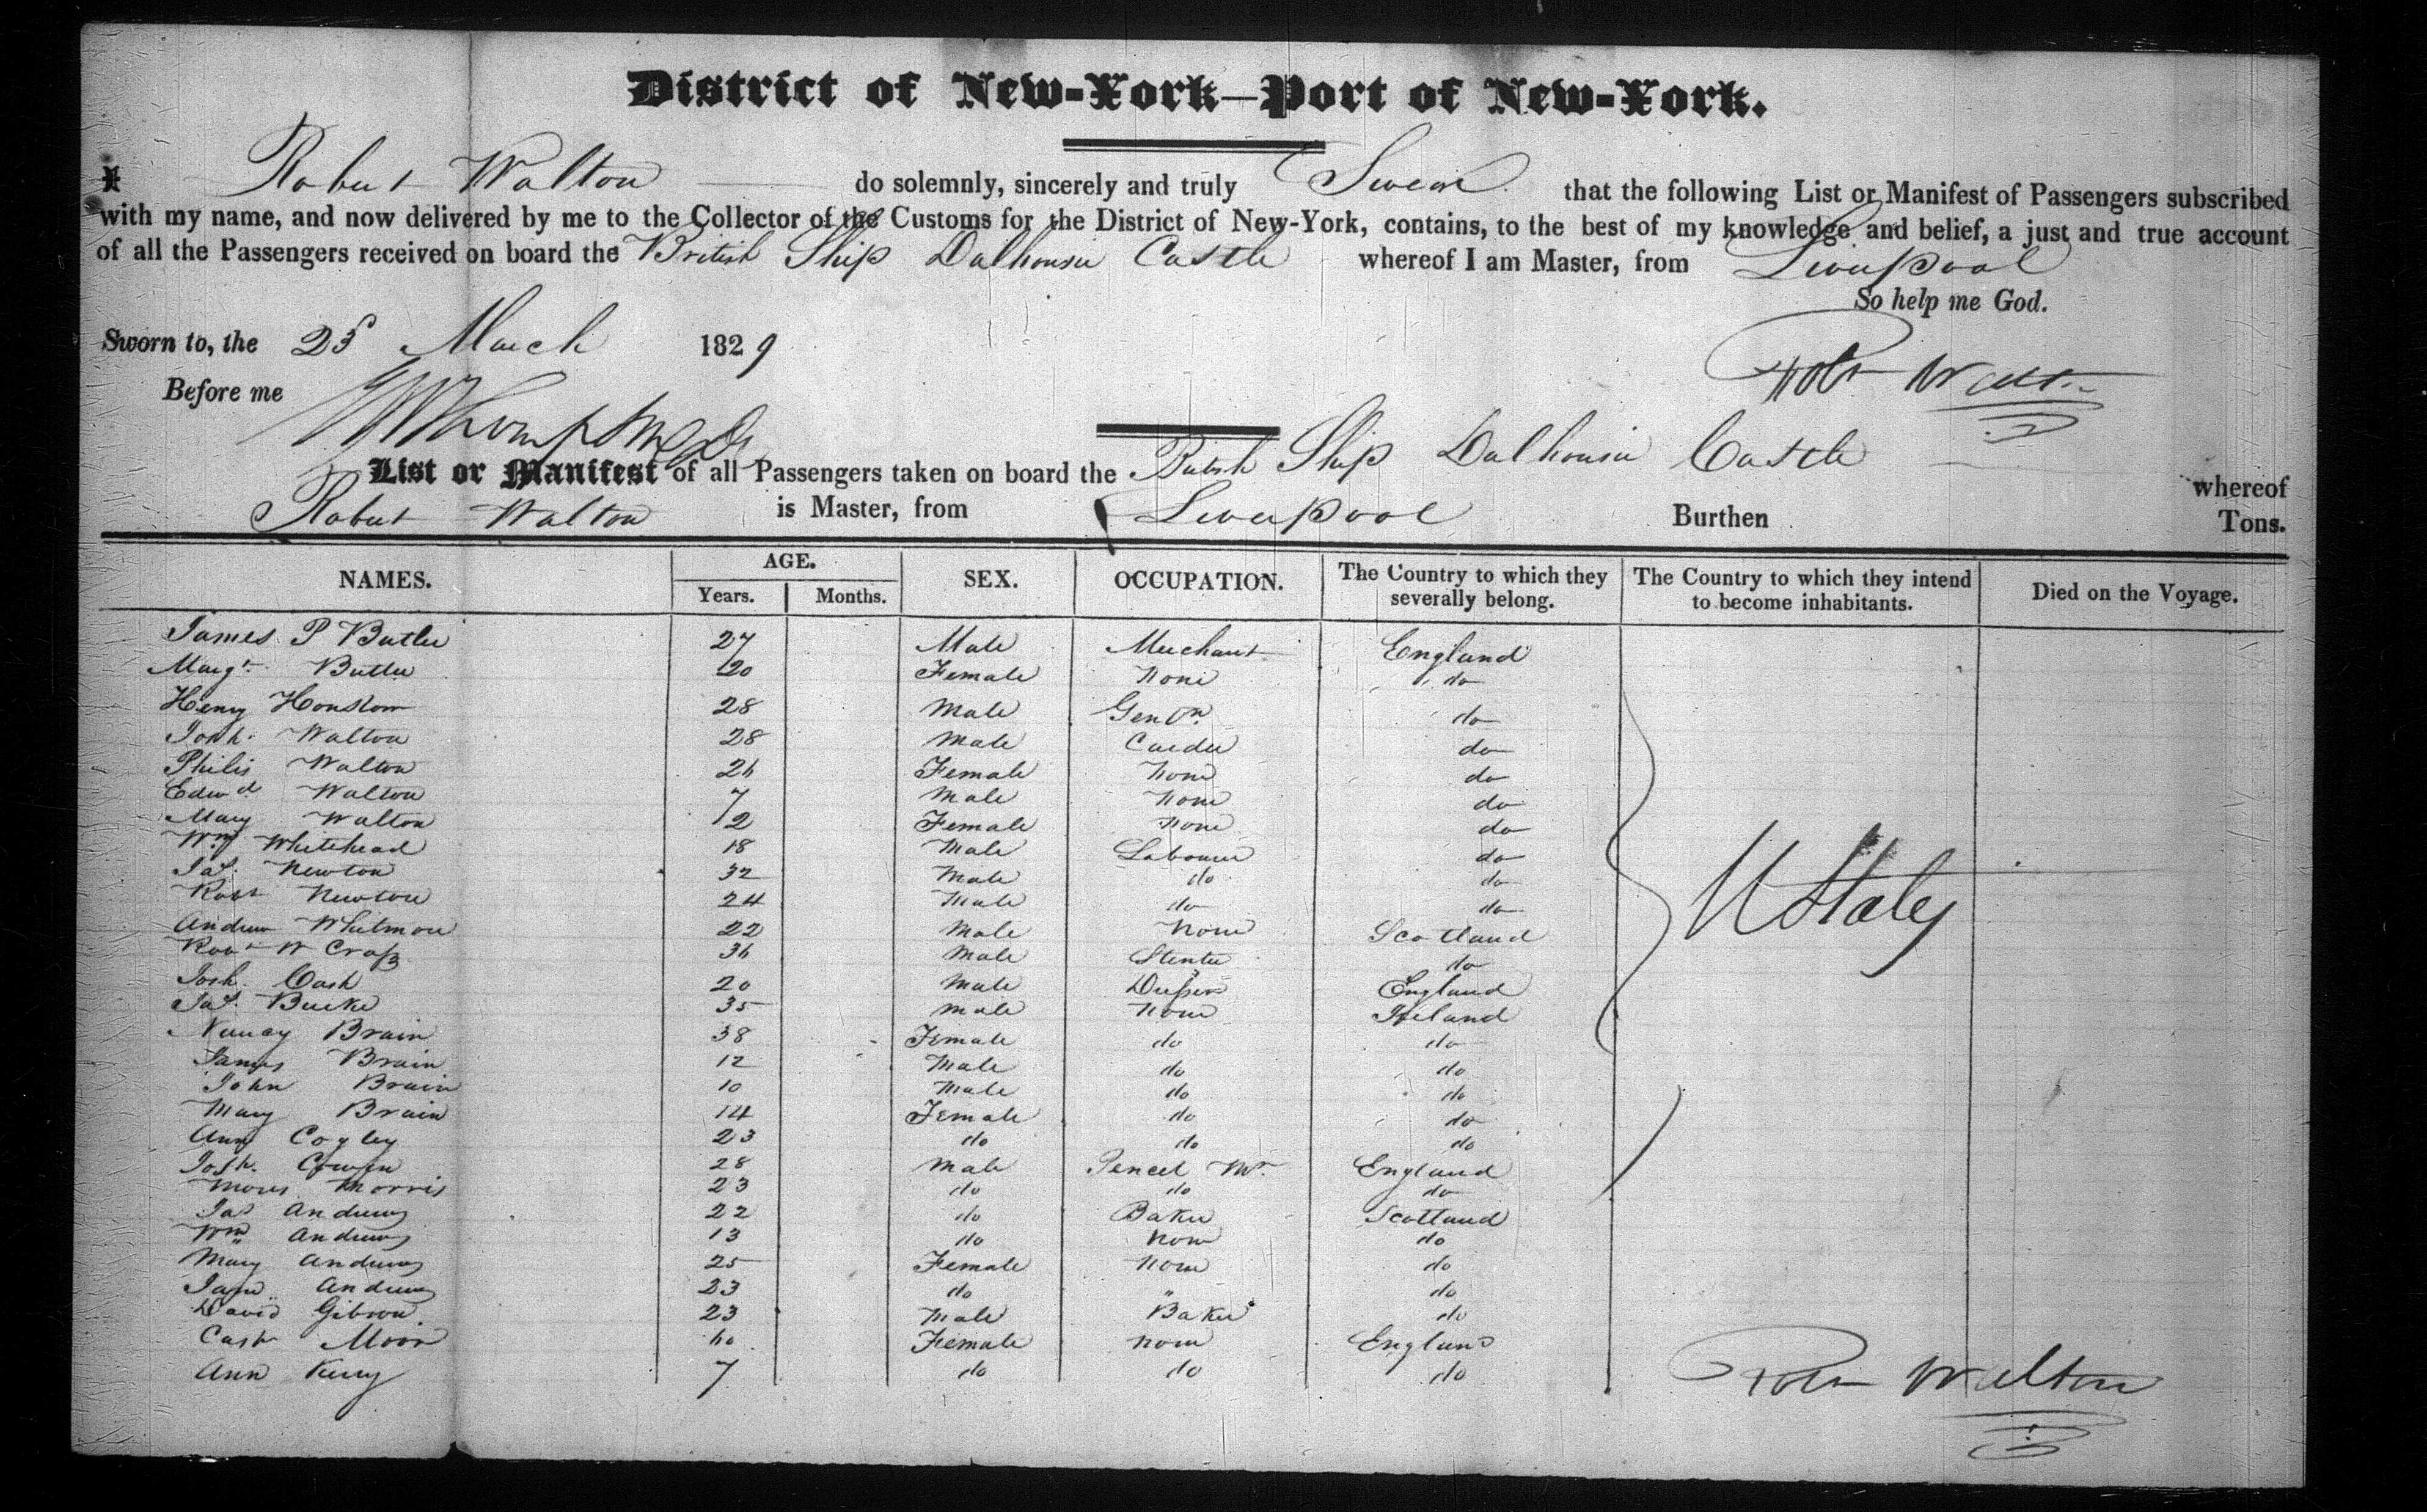 District of New-York—Port of New-York.
I Robert Walton do solemnly, sincerely and truly Swear that the following List or Manifest of Passengers subscribed
with my name, and now delivered by me to the Collector of the Customs for the District of New-York, contains, to the best of my knowledge and belief, a just and true account
of all the Passengers received on board the British Ship Dalhousie Castle whereof I am Master, from Liverpool
So help me God.
Sworn to, the 25 March 1829
Robt Walton
Before me
List or Manifest of all Passengers taken on board the British Ship Dalhousie Castle whereof
Robert Walton is Master, from Liverpool Burthen Tons.
NAMES. AGE. Years. Months. SEX. OCCUPATION. The Country to which they severally belong. The Country to which they intend to become inhabitants. Died on the Voyage.
James P Butler 27 Male Merchant England
Margt. Butler 20 Female None do
Henry 28 Male Gentn. do
Josh. Walton 28 Male Carder do
Philis Walton 26 Female None do
Edwd. Walton 7 Male None do
Mary Walton 2 Female None do
Wm. Whitehead 18 Male Labourer do
Jas. Newton 32 Male do do
Robt Newton 24 Male do do
U States
Andrew Whitmore 22 Male None Scotland
Robt W Cross 36 Male do
Josh. Cash 20 Male Dresser England
Jas. Burke 35 Male None Ireland
Nancy Brain 38 Female do do
James Brain 12 Male do do
John Brain 10 Male do do
Mary Brain 14 Female do do
Ann Cogley 23 do do do
Josh. Cowen 28 Male Pencel Mr. England
Moses Morris 23 do do do
Jas Andrews 22 do Baker Scotland
Wm Andrews 13 do None do
Mary Andrews 25 Female None do
Jane Andrews 23 do " do
David Gibson 23 Male Baker do
Moor 60 Female None England
Ann Kerry 7 do do do
Robt Walton